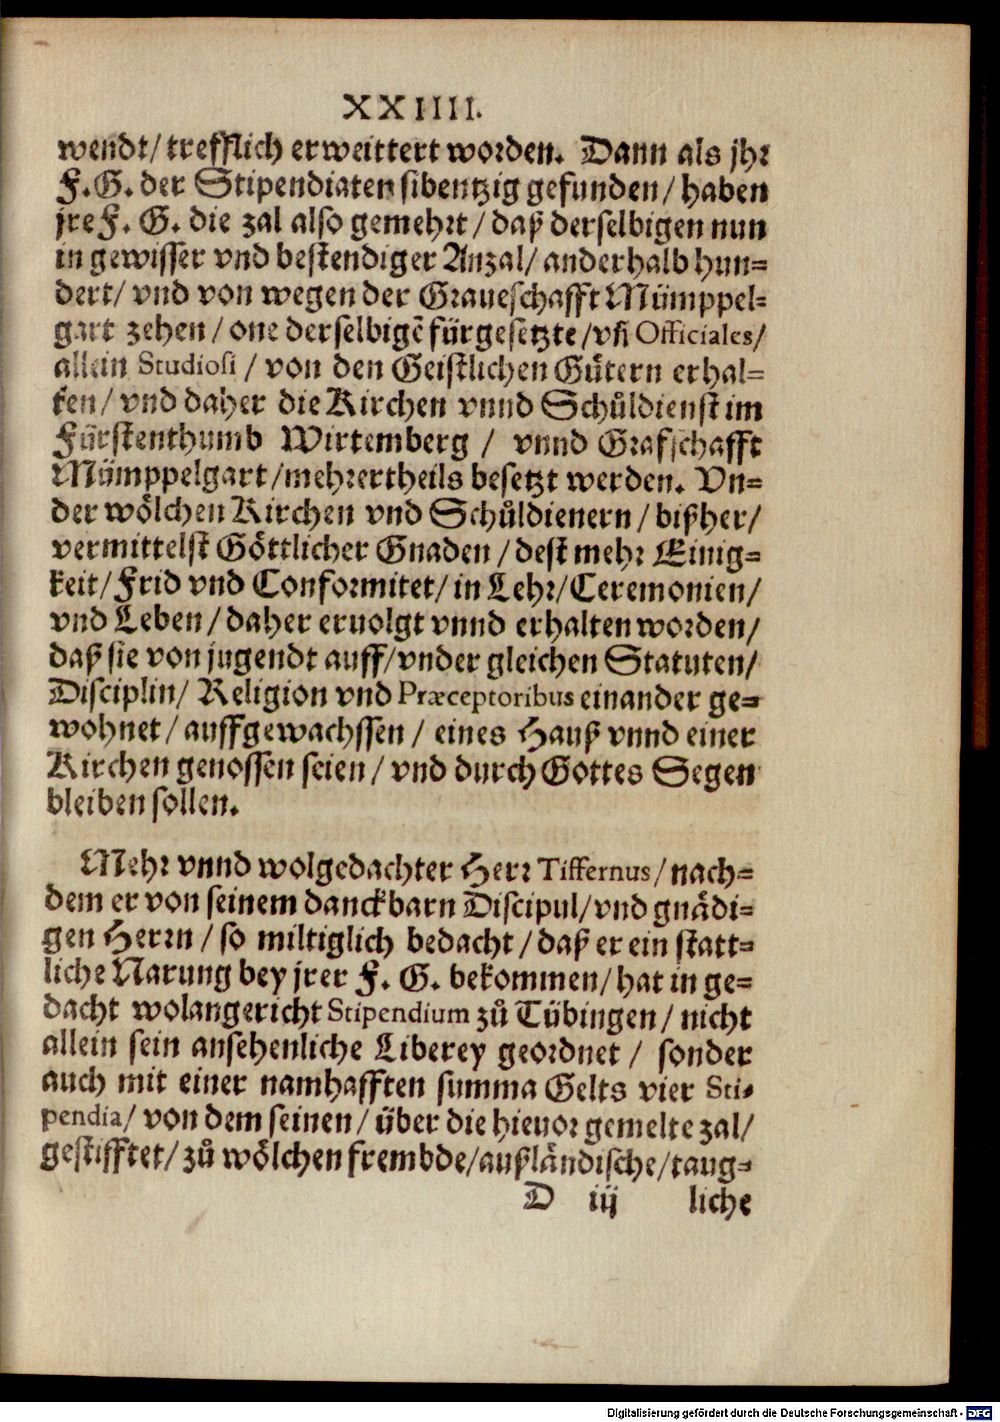 XXIIII.
wendt/ trefflich erweittert worden. Dann als jhr
F. G. der Stipendiaten sibentzig gefunden/ haben
jre F. G. die zal also gemehrt/ daß derselbigen nun
in gewisser vnd bestendiger Anzal/ anderhalb hun=
dert/ vnd von wegen der Graueschafft Mümppel=
gart zehen/ one derselbigẽ fürgesetzte/ vñ Officiales/
allein Studiosi/ von den Geistlichen Gůtern erhal=
ten/ vnd daher die Kirchen vnnd Schůldienst im
Fürstenthumb Wirtemberg/ vnnd Grafschafft
Mümppelgart/ mehrertheils besetzt werden. Vn=
der wölchen Kirchen vnd Schůldienern/ bißher/
vermittelst Göttlicher Gnaden/ dest mehr Einig=
keit/ Frid vnd Conformitet/ in Lehr/ Ceremonien/
vnd Leben/ daher eruolgt vnnd erhalten worden/
daß sie von jugendt auff/ vnder gleichen Statuten/
Disciplin/ Religion vnd Præceptoribus einander ge=
wohnet/ auffgewachssen/ eines Hauß vnnd einer
Kirchen genossen seien/ vnd durch Gottes Segen
bleiben sollen.
Mehr vnnd wolgedachter Herr Tiffernus/ nach=
dem er von seinem danckbarn Discipul/ vnd gnädi=
gen Herrn/ so miltiglich bedacht/ daß er ein statt=
liche Narung bey jrer F. G. bekommen/ hat in ge=
dacht wolangericht Stipendium zů Tübingen/ nicht
allein sein ansehenliche Liberey geordnet/ sonder
auch mit einer namhafften summa Gelts vier Sti=
pendia/ von dem seinen/ über die hieuor gemelte zal/
gestifftet/ zů wölchen frembde/ außländische/ taug=
D iij liche
Digitalisierung gefördert durch die Deutsche Forschungsgemeinschaft - DFG